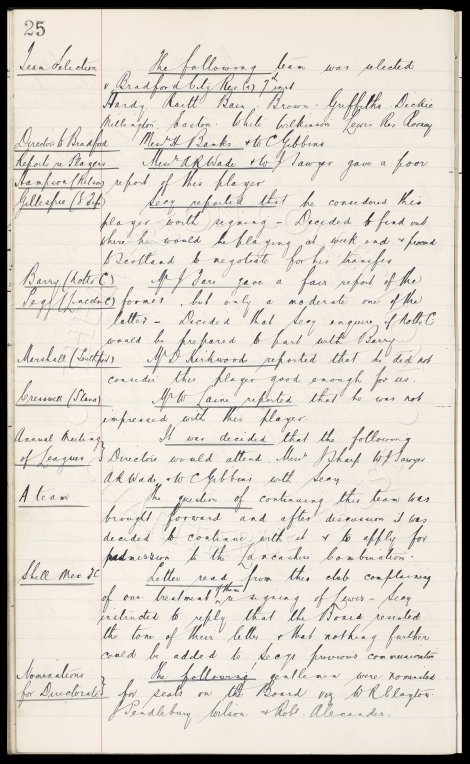 25
Team Selection The following team was selected
v Bradford City Res (a) 7th inst
Hardy Raitt Bain Brown Griffiths Dickie
Millington Easton White Wilkinson Lewis Res Rooney
Director to Bradford Messrs H Banks & W C Gibbins
Reports re Players Messrs A R Wade & W J Sawyer gave a poor
Hampson (Nelson) report of this player
Gillespie (Q. of S.) Secy reported that he considered this
player worth signing - Decided to find out
where he would be playing at week end & proceed
to Scotland to negotiate for his transfer
Barry (Notts C) Mr J Fare gave a fair report of the
Pegg (Lincoln C) former, but only a moderate one of the
latter - Decided that Secy enquire if Notts C
would be prepared to part with Barry
Marshall (Southport) Mr D Kirkwood reported that he did not
consider this player good enough for us.
Cresswell (Staves) Mr W Laine reported that he was not
impressed with this player.
Annual Meeting It was decided that the following
of Leagues Directors would attend. Messrs J Sharp W J Sawyer
A R Wade & W C Gibbins with Secy
A team The question of continuing this team was
brought forward and after discussion it was
decided to continue with it & to apply for
admission to the Lancashire Combination.
Shell Mex FC Letter read from this club complaining
of our treatment of them re signing of Lewis - Secy
instructed to reply that the Board resented
the tone of their letter & that nothing further
could be added to Secys previous communication
Nominations The following gentlemen were nominated
for Directorate for seats on the Board viz W R Clayton
J Pendlebury Wilson & Robt. Alexander.